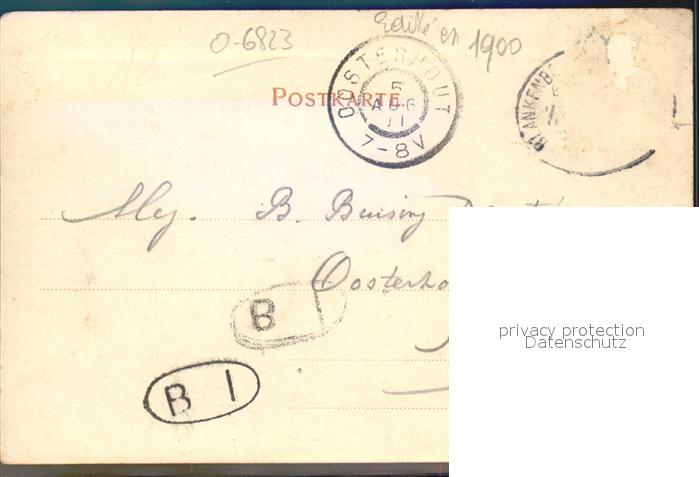 O-6823
Edité en 1900
OOSTERHOUT
5
AUG
11
7-8V
BLANKENB
POSTKARTE.
Mej. B. Buising
Oosterho
B
B I
privacy protection
Datenschutz